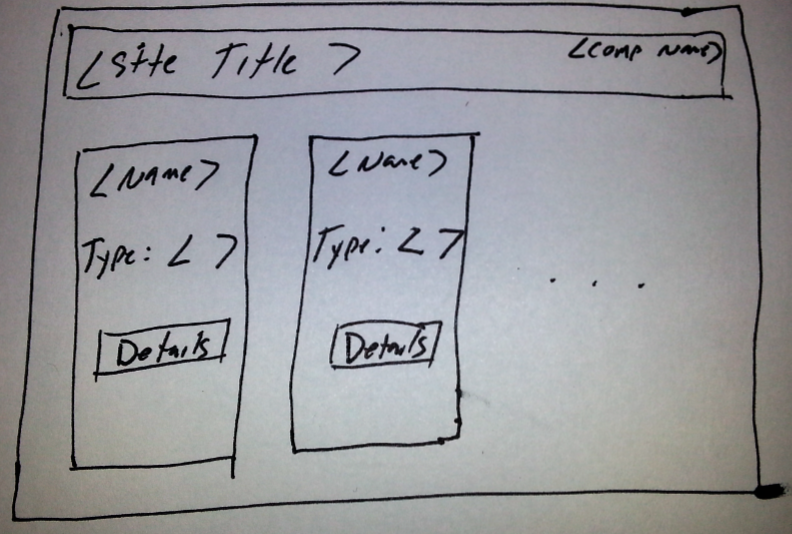 <Site Title>
<Comp Name>
<Name>
Type: < >
Details
<Name>
Type: < >
Details
. . .